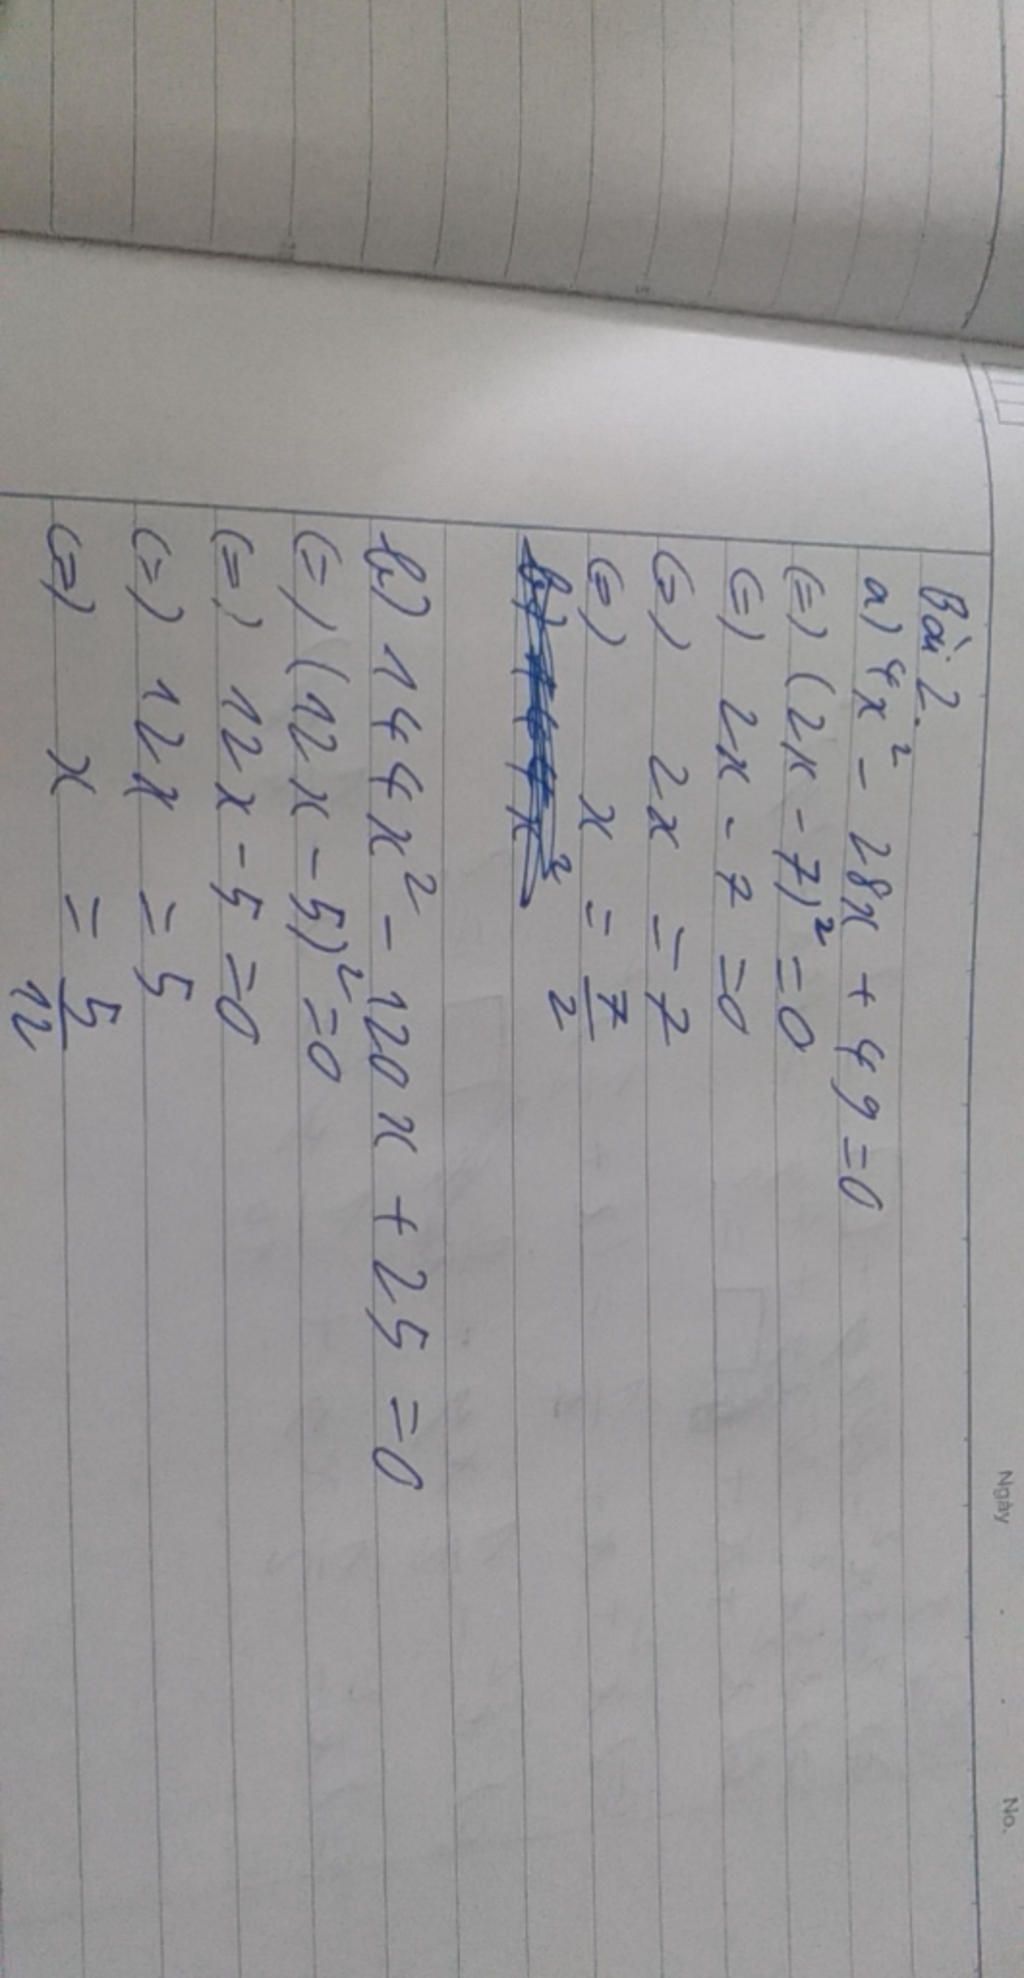 Ngày
No.
Bài 2.
a) 4x² - 28x + 49 = 0
(=) (2x - 7)² = 0
(=) 2x - 7 = 0
(=) 2x = 7
(=) x = 7/2
b) 144x² - 120x + 25 = 0
(=) (12x - 5)² = 0
(=) 12x - 5 = 0
(=) 12x = 5
(=) x = 5/12